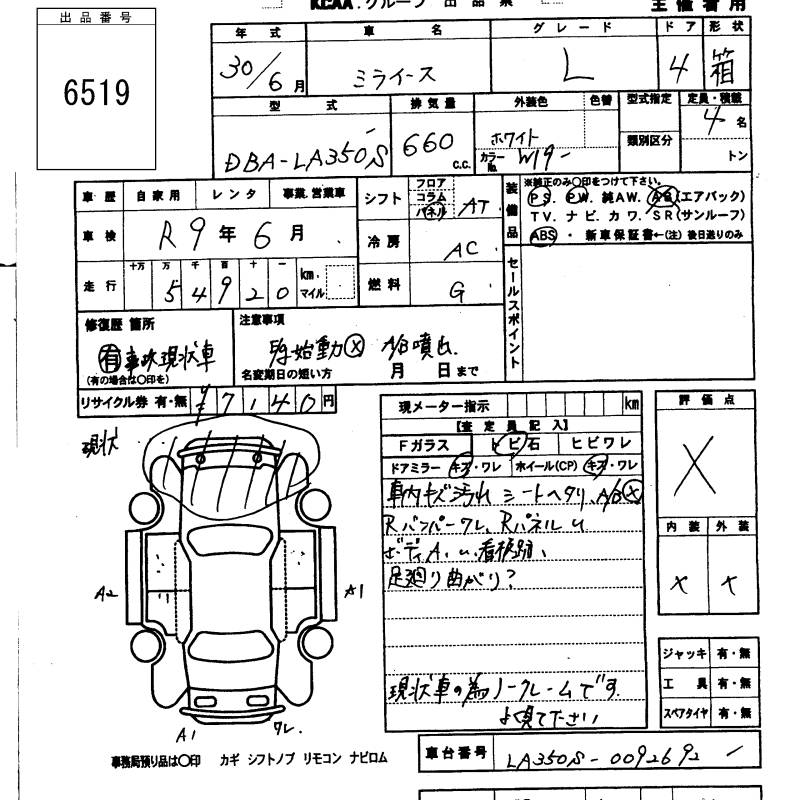 KCAA.グループ 出品票
主催者用
出品番号
6519
年式 車名 グレード ドア 形状
30/6月 ミライース L 4 箱
型式 排気量 外装色 色替 型式指定 定員・積載
DBA-LA350S 660 c.c. ホワイト カラーNo. W19 類別区分 4名
トン
車歴 自家用 レンタ 事業.営業車
車検 R9年6月
走行 十万 万 千 百 十 一
54920 km. マイル
シフト フロア コラム パネル AT
冷房 AC
燃料 G
装備品 ※純正のみ○印をつけて下さい。
PS. PW. 純AW. AB(エアバック)
TV. ナビ. カワ. SR(サンルーフ)
ABS ・ 新車保証書←(注) 後日送りのみ
セールスポイント
修復歴 箇所
有 事故現状車
(有の場合は○印を)
注意事項
E/g始動× A/B噴出.
名変期日の短い方 月 日まで
リサイクル券 有・無 ¥7140円
現状
現メーター指示 km
【査定員記入】
Fガラス トビ石 ヒビワレ
ドアミラー キズ・ワレ ホイール(CP) キズ・ワレ
車内キズ汚れ シートヘタリ. A/B×
Rバンパーワレ、Rパネルu
ボディA.u.看板跡、
足廻り曲がり?
現状車の為ノークレームです.
よく見て下さい
評価点
X
内装 外装
x x
A2
A1
A1
ワレ.
ジャッキ 有・無
工具 有・無
スペアタイヤ 有・無
事務局預り品は○印 カギ シフトノブ リモコン ナビロム
車台番号 LA350S-0092692